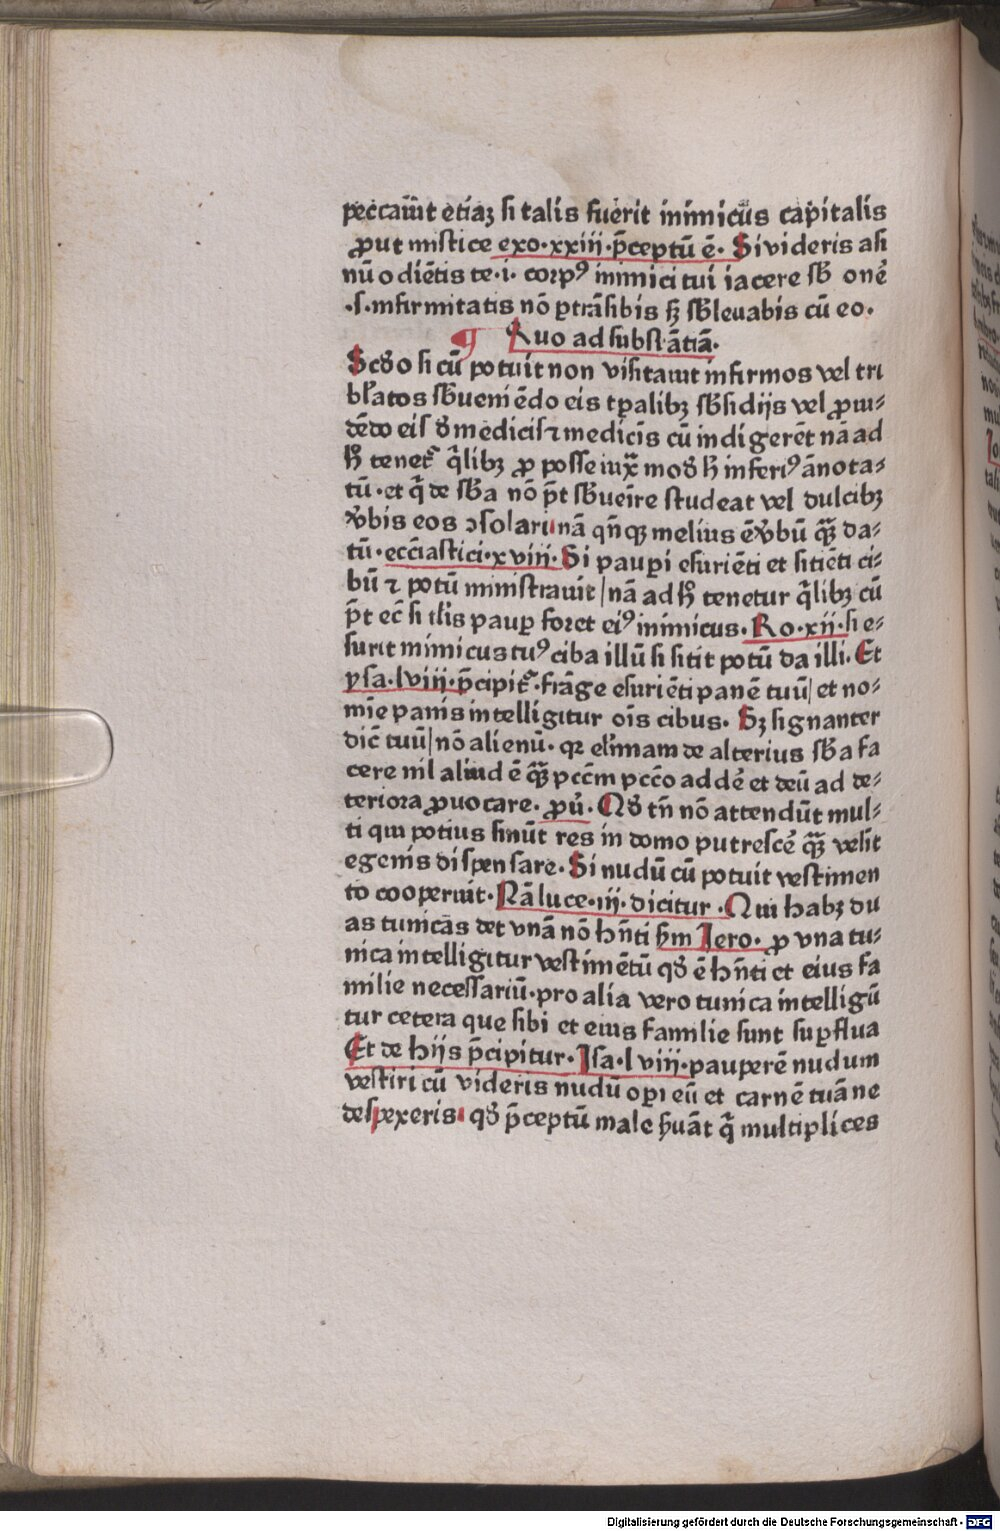 peccauit etiaꝫ si talis fuerit inimicus capitalis
ꝓut mistice exo·xxiii·p̄ceptū ē· Si videris asi
nū odiētis te·i· corpꝰ inimici tui iacere sb̄ onē
·s·infirmitatis nō ꝑtrāsibis sꝫ sb̄leuabis cū eo·
¶ Quo ad substātiā·
Scd̄o si cū potuit non visitauit infirmos vel tri
bl̄atos sb̄ueniēdo eis tꝑalibꝫ sb̄sidijs vel ꝓui⸗
dēdo eis d̄ medicis ⁊ medicīs cū indigerēt nā ad
h̄ tenet᷑ q̄libꝫ ꝓ posse iux̄ mod̄ h̄ inferiꝰ ānota⸗
tū·et q̄ de sb̄a nō p̄t sb̄ueīre studeat vel dulcibꝫ
v̄bis eos ɔsolari nā qn̄qꝫ melius ē v̄bū qꝫ̄ da⸗
tū·ecciastici·xviii· Si pauꝑi esuriēti et sitiēti ci⸗
bū ⁊ potū ministrauit/nā ad h̄ tenetur q̄libꝫ cū
p̄t ec̄ si tl̄is pauꝑ foret eiꝰ inimicus· Ro·xii·si e⸗
surit inimicus tuꝰ ciba illū si sitit potū da illi· Et
ysa·lviii·p̄cipit᷑·frāge esuriēti panē tuū/et no⸗
mīe panis intelligitur oīs cibus· Sꝫ signanter
dic̄ tuū/nō alienū· qꝛ eli̅nam de alterius sb̄a fa
cere nil aliud ē qꝫ̄ pcc̄m pcc̄o addē et deū ad de⸗
teriora ꝓuocare· ꝓu̇· Qd̄ tn̄ nō attendūt mul⸗
ti qui potius sinūt res in domo putrescē qꝫ̄ velīt
egenis dispensare· Si nudū cū potuit vestimen
to cooperuit· Nā luce·iij·dicitur· Qui habꝫ du
as tunicas det vnā nō hn̄ti sm̄ Iero· ꝓ vna tu⸗
nica intelligitur vestimētū qd̄ ē hn̄ti et eius fa
milie necessariū·pro alia vero tunica intelligū
tur cetera que sibi et eius familie sunt suꝑflua
Et de hijs p̄cipitur· Isa·lviij·pauperē nudum
vestiri cū videris nudū oꝑi eū et carnē tuā ne
despexeris· qd̄ p̄ceptū male ẜuāt q̄ multiplices
Digitalisierung gefördert durch die Deutsche Forschungsgemeinschaft - DFG